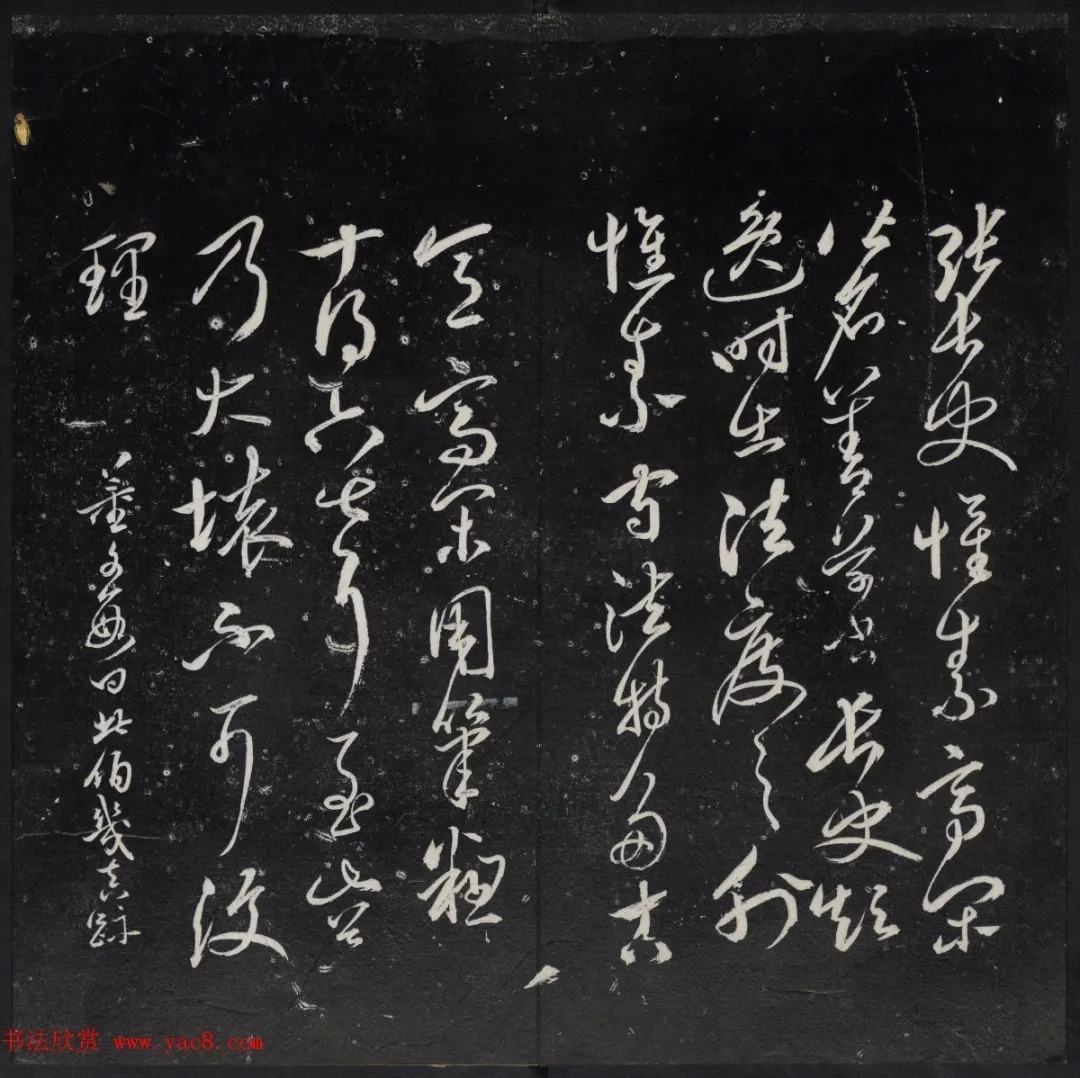 張長史懷素高閑
皆名善草書長史顛
逸時出法度之外
懷素守法特多古
意高閑用筆粗
十得六七耳至山谷
乃大壞不可復
理
董文敏曰此伯幾真跡
书法欣赏 www.yac8.com